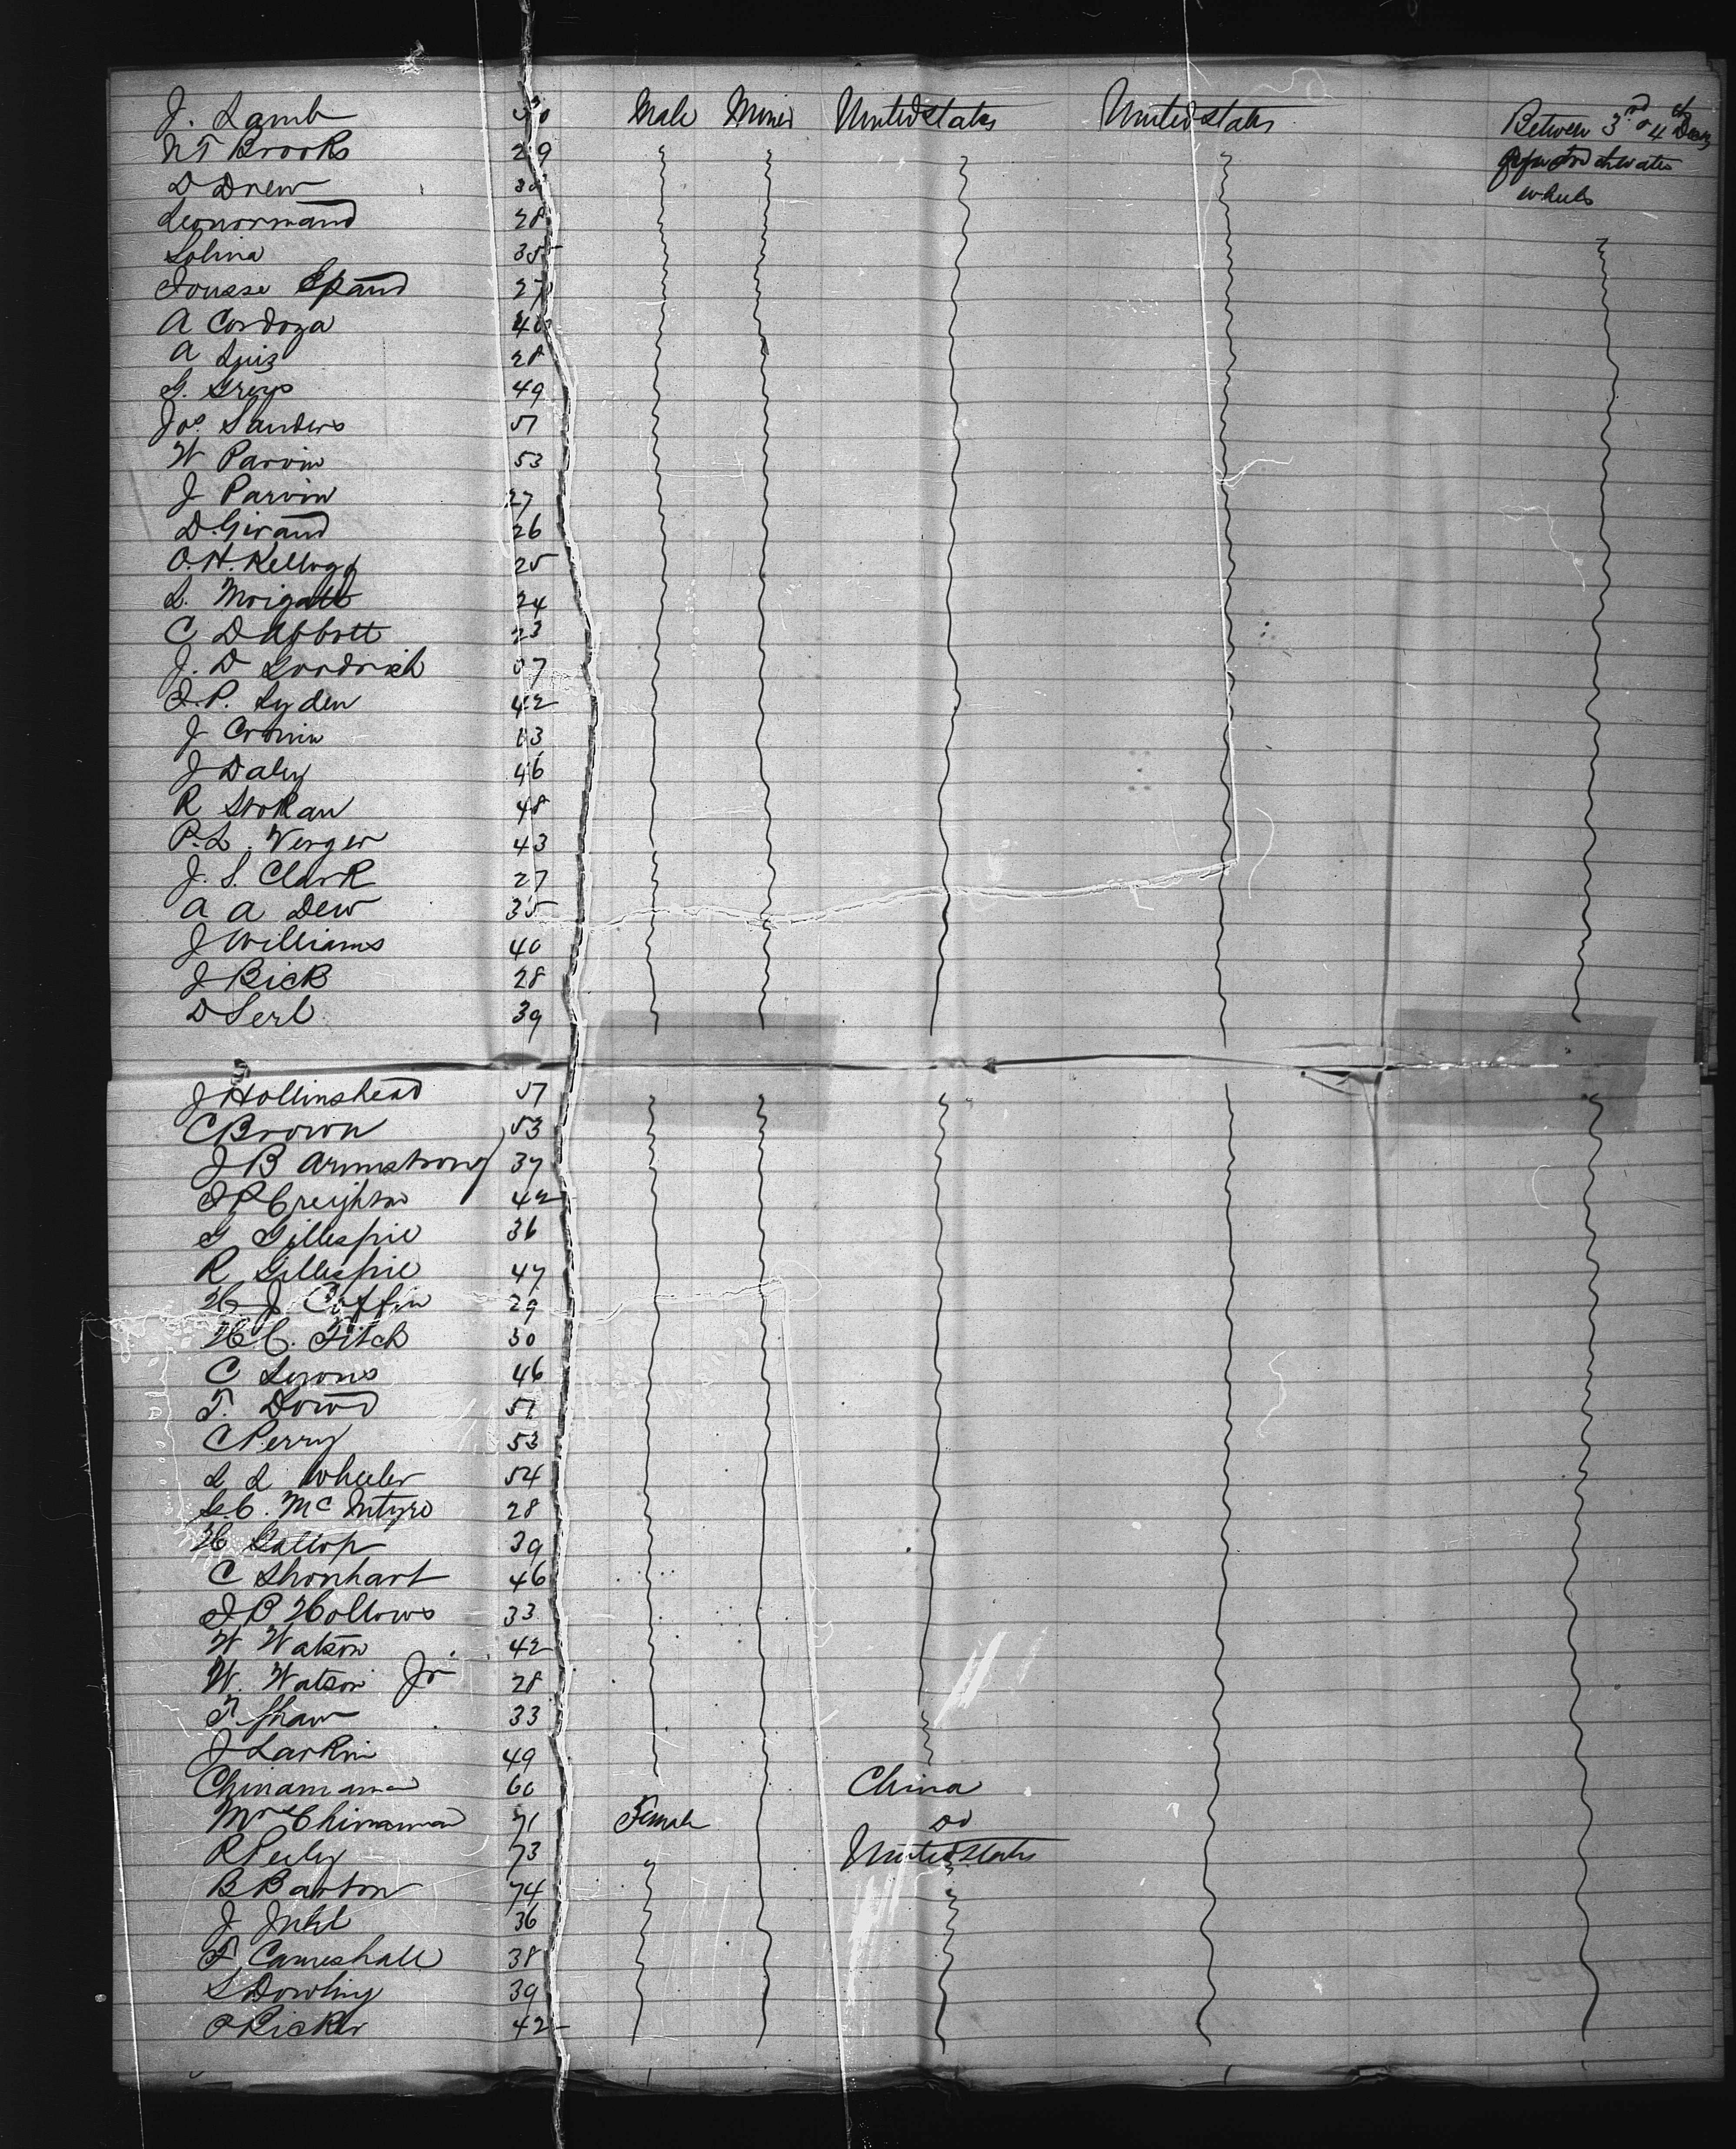 J. Lamb 30 Male Miner United States United States Between 3rd & 4th Decks
N T Brooks 29
D Drew 30 wheels
Leonormand 28
Solina 35
Jousse Epand 27
A Cordoza 40
A Luiz 28
G. Greys 49
Jos. Sanders 51
W Parvin 53
J Parvin 27
D. Girand 26
O. H. Kellogg 25
L. Moigatt 24
C D Abbott 23
J. D Goodrich 37
J. P. Lyden 42
J Cronin 63
J Daly 46
R Stokan 48
P. L. Verger 43
J. S. Clark 27
A A Dew 35
J Williams 40
J Bick 28
D Serl 39
J Hollinshead 51
C Brown 53
J B Armstrong 37
J P Creighton 42
G Gillespie 36
R Gillespie 47
H. J. Coffin 29
H. C. Fitch 30
C Lyons 46
T. Dowd 51
C Perry 53
L L Wheeler 54
G. C. McIntyre 28
H Gallop 39
C Shonhart 46
J B Hollows 33
W Watson 42
W. Watson Jr 28
T. Shaw 33
J Larkin 49
Chinaman 60 China
Mrs Chinaman 71 Female do
R Perley 73 United States
B Barton 74
J Juhl 36
F Cameshall 38
S Dowling 39
P Ricker 42